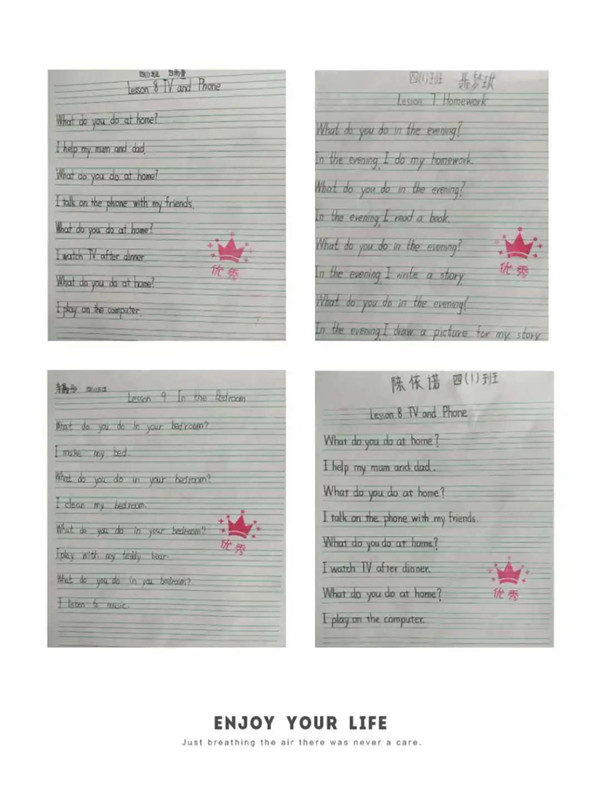 四(1)班
Lesson 8 TV and Phone
What do you do at home?
I help my mum and dad.
What do you do at home?
I talk on the phone with my friends.
What do you do at home?
I watch TV after dinner.
What do you do at home?
I play on the computer.
优秀
四(1)班
Lesson 7 Homework
What do you do in the evening?
In the evening, I do my homework.
What do you do in the evening?
In the evening, I read a book.
What do you do in the evening?
In the evening, I write a story.
What do you do in the evening?
In the evening I draw a picture for my story
优秀
Lesson 9 In the Bedroom
What do you do in your bedroom?
I make my bed.
What do you do in your bedroom?
I clean my bedroom.
What do you do in your bedroom?
I play with my teddy bear.
What do you do in you bedroom?
I listen to music.
优秀
陈依诺 四(1)班
Lesson 8 TV and Phone
What do you do at home?
I help my mum and dad.
What do you do at home?
I talk on the phone with my friends.
What do you do at home?
I watch TV after dinner.
What do you do at home?
I play on the computer.
优秀
ENJOY YOUR LIFE
Just breathing the air there was never a care.